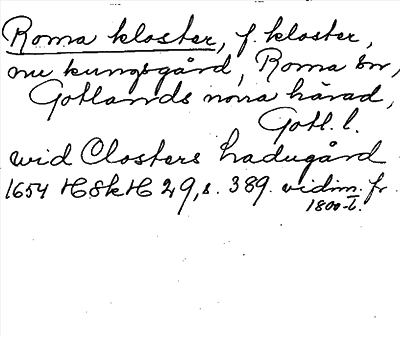 Roma kloster, f. kloster,
nu kungsgård, Roma sn,
Gotlands norra härad,
Gotl. l.
wid Closters Ladugård
1654 HSkH 29, s. 389. vidim. fr.
1800-t.